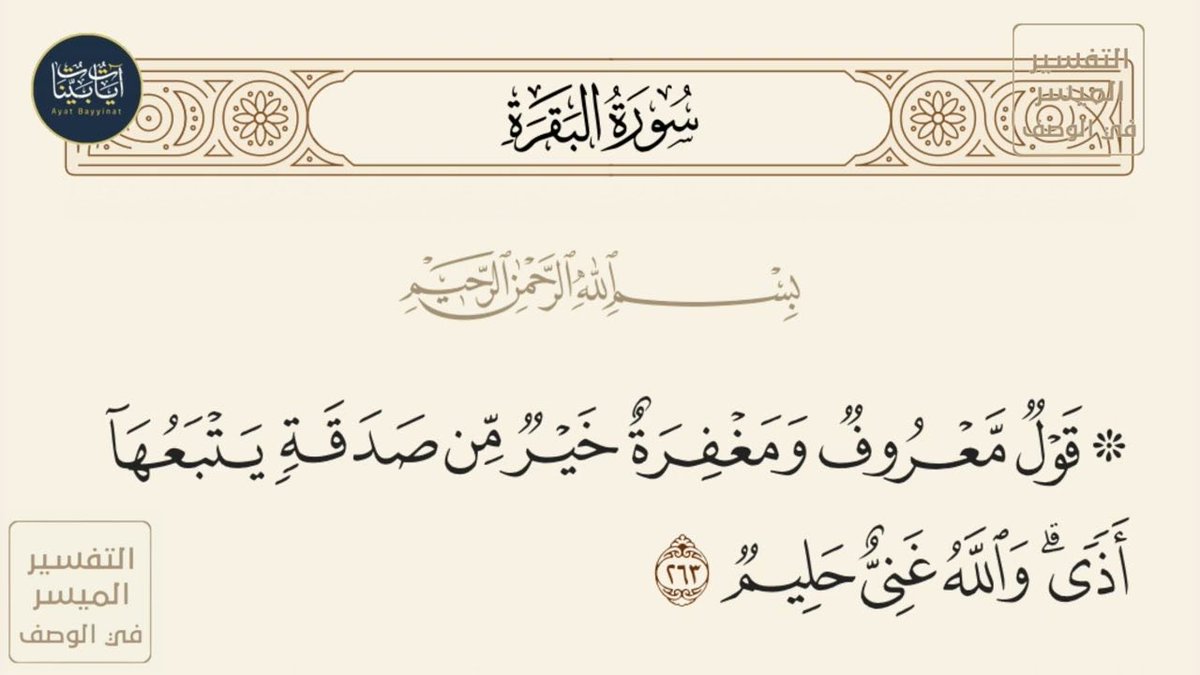 آيات بينات
Ayat Bayyinat
سُورَةُ البَقَرَةِ
التفسير
الميسر
في الوصف
بِسْمِ ٱللَّهِ ٱلرَّحْمَٰنِ ٱلرَّحِيمِ
۞ قَوْلٌ مَّعْرُوفٌ وَمَغْفِرَةٌ خَيْرٌ مِّن صَدَقَةٍ يَتْبَعُهَآ
أَذًى ۗ وَٱللَّهُ غَنِىٌّ حَلِيمٌ ٢٦٣
التفسير
الميسر
في الوصف